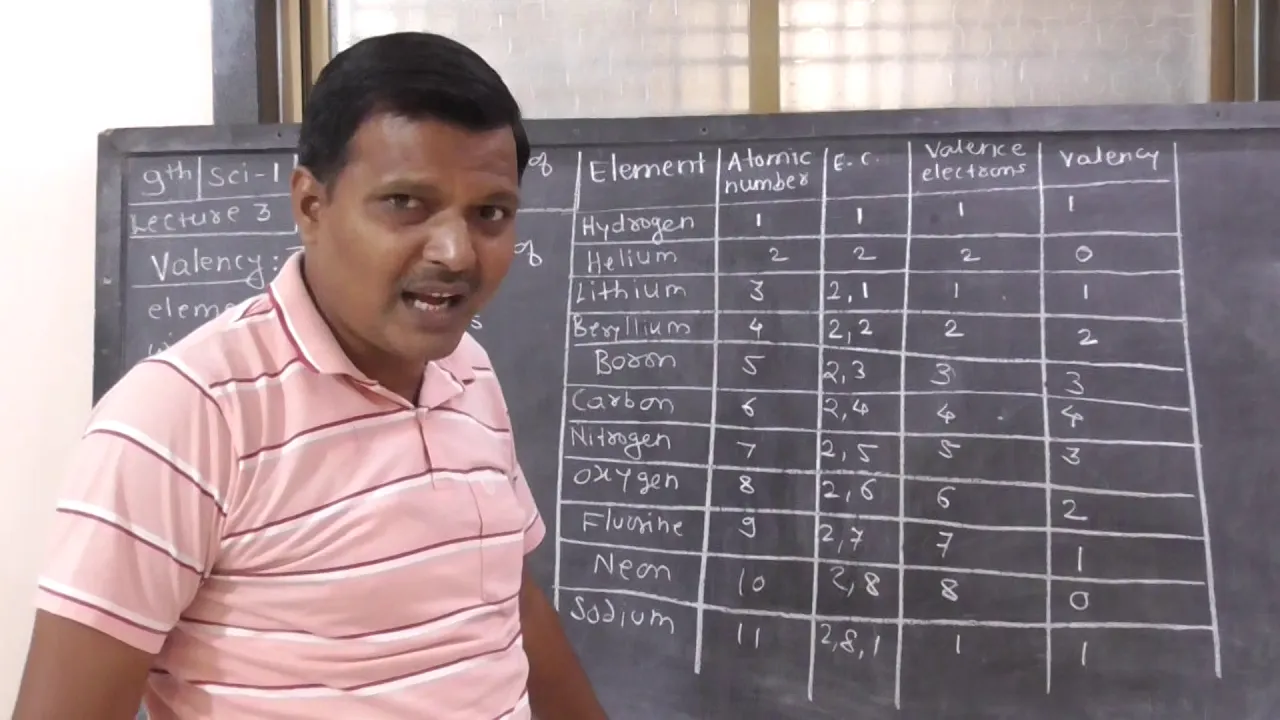 9th | Sci-1 of
Lecture 3
Valency: of
s
Element Atomic number E.C. Valence electrons Valency
Hydrogen 1 1 1 1
Helium 2 2 2 0
Lithium 3 2,1 1 1
Beryllium 4 2,2 2 2
Boron 5 2,3 3 3
Carbon 6 2,4 4 4
Nitrogen 7 2,5 5 3
Oxygen 8 2,6 6 2
Fluorine 9 2,7 7 1
Neon 10 2,8 8 0
Sodium 11 2,8,1 1 1